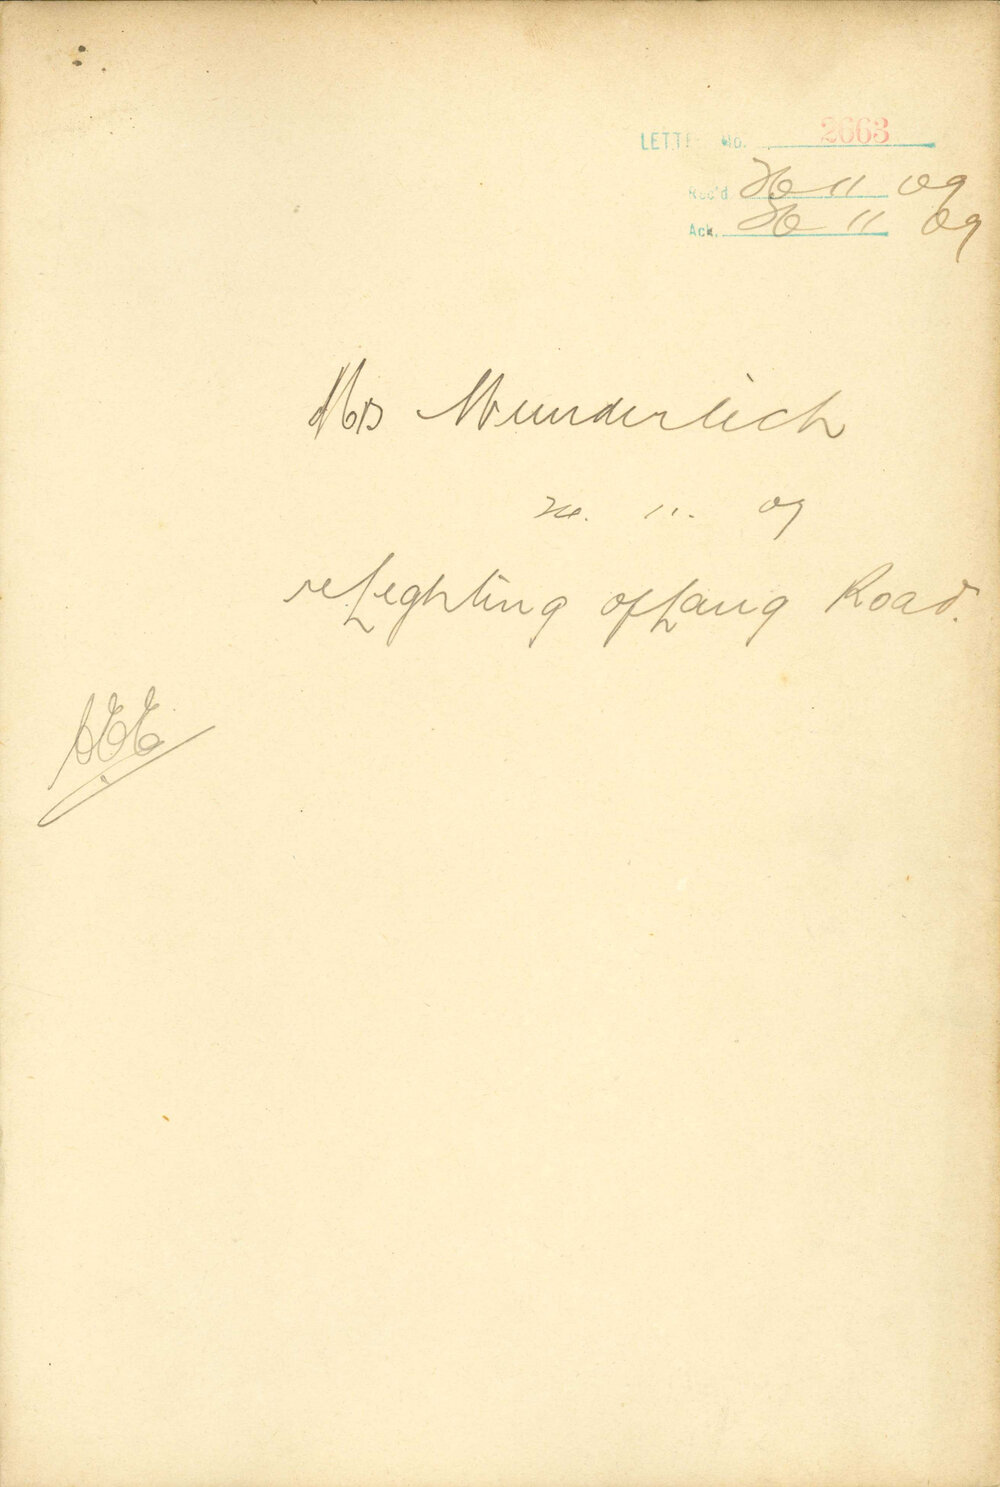 LETTER No. 2663
Rec'd. 26 11 09
Ack. 26 11 09
Mrs Wunderlich
26. 11. 09
re Lighting of Lang Road.